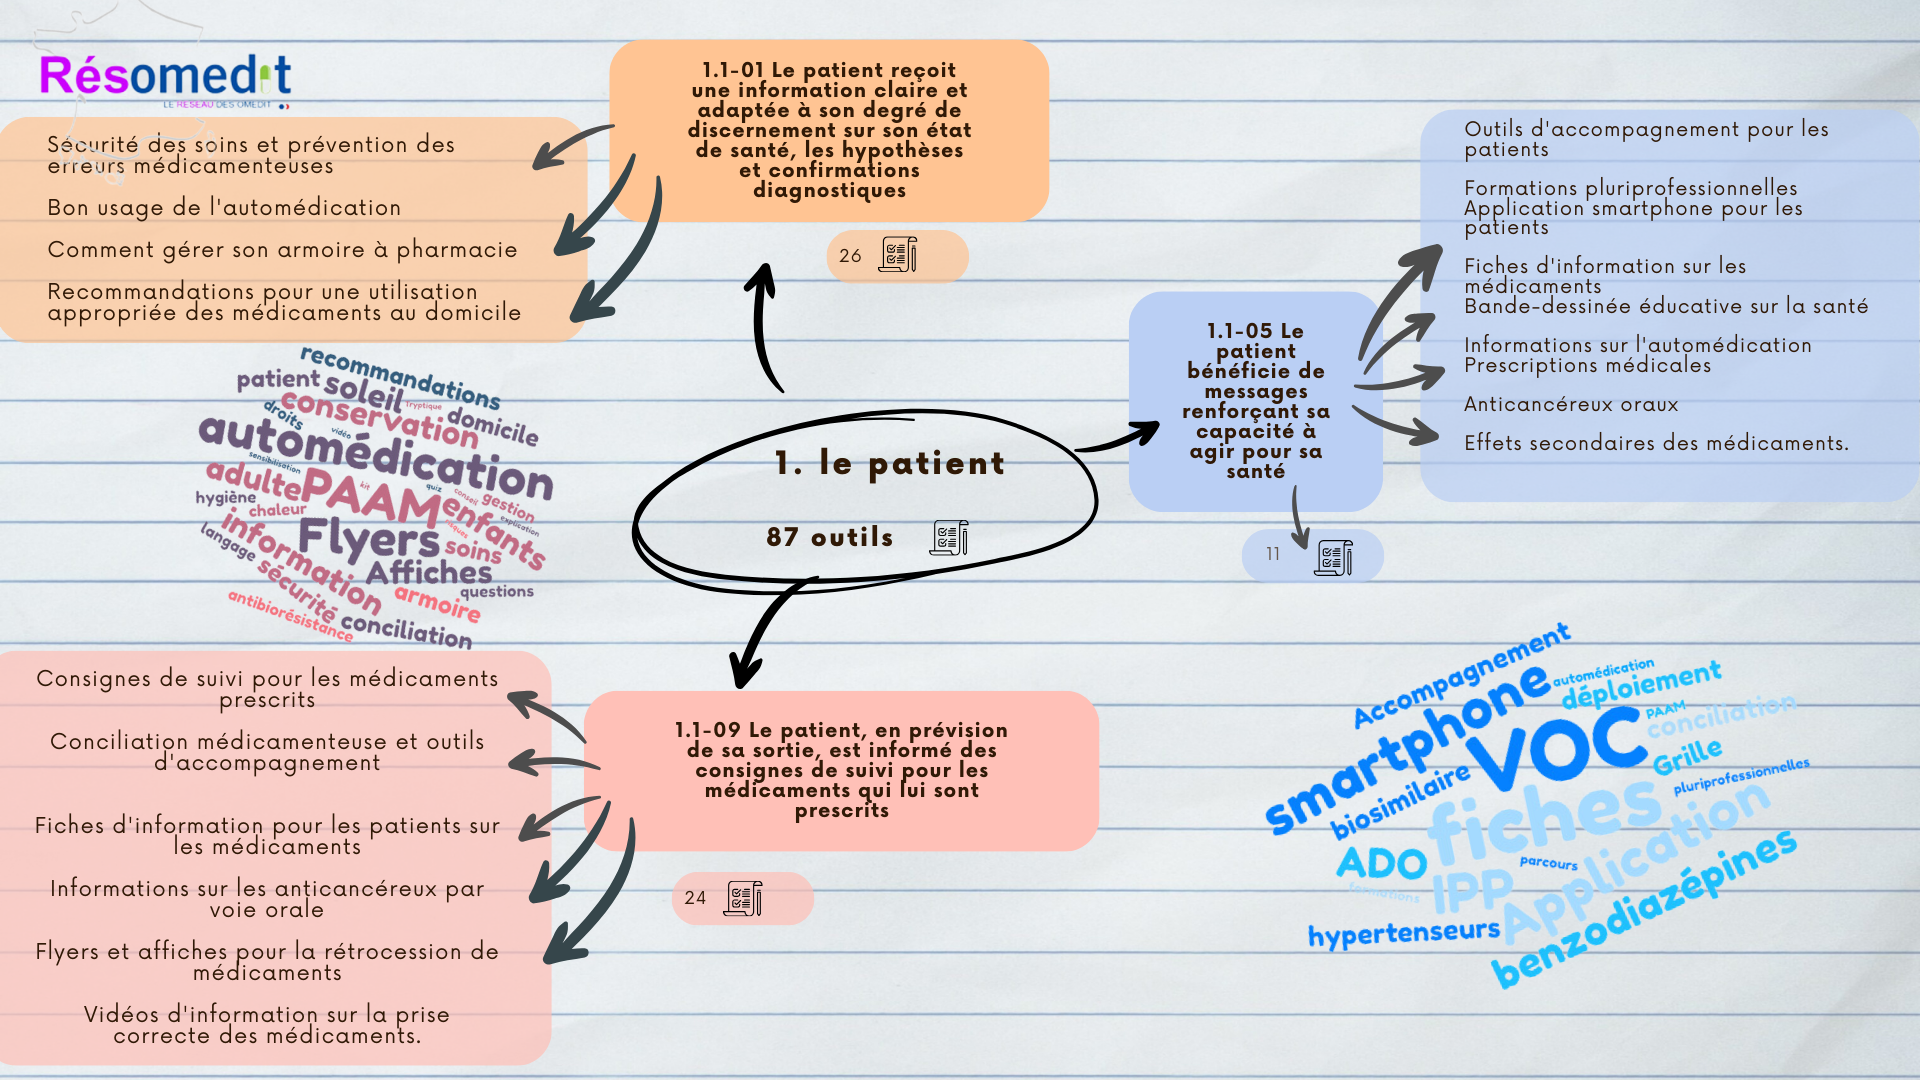 Résomedit
LE RESEAU DES OMEDIT
1.1-01 Le patient reçoit
une information claire et
adaptée à son degré de
discernement sur son état
de santé, les hypothèses
et confirmations
diagnostiques
26
Sécurité des soins et prévention des
erreurs médicamenteuses
Bon usage de l'automédication
Comment gérer son armoire à pharmacie
Recommandations pour une utilisation
appropriée des médicaments au domicile
recommandations
patient
soleil
Tryptique
conservation
domicile
droits
vidéo
automédication
sensibilisation
adulte
PAAM
kit
quiz
conseil
gestion
enfants
explication
risques
hygiène
chaleur
information
Flyers
soins
langage
sécurité
Affiches
questions
armoire
antibiorésistance
conciliation
1. le patient
87 outils
1.1-05 Le
patient
bénéficie de
messages
renforçant sa
capacité à
agir pour sa
santé
11
Outils d'accompagnement pour les
patients
Formations pluriprofessionnelles
Application smartphone pour les
patients
Fiches d'information sur les
médicaments
Bande-dessinée éducative sur la santé
Informations sur l'automédication
Prescriptions médicales
Anticancéreux oraux
Effets secondaires des médicaments.
1.1-09 Le patient, en prévision
de sa sortie, est informé des
consignes de suivi pour les
médicaments qui lui sont
prescrits
24
Consignes de suivi pour les médicaments
prescrits
Conciliation médicamenteuse et outils
d'accompagnement
Fiches d'information pour les patients sur
les médicaments
Informations sur les anticancéreux par
voie orale
Flyers et affiches pour la rétrocession de
médicaments
Vidéos d'information sur la prise
correcte des médicaments.
Accompagnement
smartphone
automédication
déploiement
PAAM
conciliation
VOC
Grille
biosimilaire
pluriprofessionnelles
fiches
ADO
parcours
Application
formations
IPP
hypertenseurs
benzodiazépines